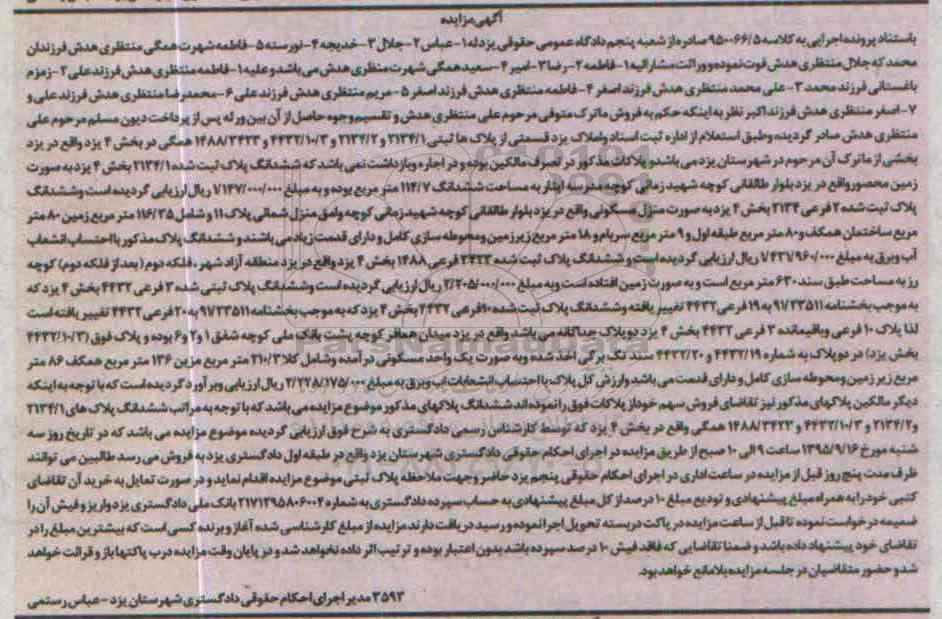 آگهی مزایده
باستناد پرونده اجرایی به کلاسه ۹۵۰۰۶۶/۵ صادره از شعبه پنجم دادگاه عمومی حقوقی یزد له ۱- عباس ۲- جلال ۳- خدیجه ۴- نورسته ۵- فاطمه شهرت همگی منتظری هدش فرزندان
محمد که جلال منتظری هدش فوت نموده و وراثت مشارالیه ۱- فاطمه ۲- رضا ۳- امیر ۴- سعید همگی شهرت منتظری هدش می باشد و علیه ۱- فاطمه منتظری هدش فرزند علی ۲- زمزم
باغستانی فرزند محمد ۳- علی محمد منتظری هدش فرزند اصغر ۴- فاطمه منتظری هدش فرزند اصغر ۵- مریم منتظری هدش فرزند علی ۶- محمدرضا منتظری هدش فرزند علی و
۷- اصغر منتظری هدش فرزند اکبر نظر به اینکه حکم به فروش ماترک متوفی مرحوم علی منتظری هدش و تقسیم وجوه حاصل از آن بین ورثه پس از پرداخت دیون مسلم مرحوم علی
منتظری هدش صادر گردیده و طبق استعلام از اداره ثبت اسناد و املاک یزد قسمتی از پلاک ها ثبتی ۲۱۳۴/۱ و ۲۱۳۴/۲ و ۴۴۳۲/۱۰/۳ و ۱۴۸۸/۳۴۲۳ همگی در بخش ۴ یزد واقع در یزد
بخشی از ماترک آن مرحوم در شهرستان یزد می باشد و پلاکات مذکور در تصرف مالکین بوده و در اجاره و بازداشت نمی باشد که ششدانگ پلاک ثبت شده ۲۱۳۴/۱ بخش ۴ یزد به صورت
زمین محصور واقع در یزد بلوار طالقانی کوچه شهید زمانی کوچه مدرسه ایثار به مساحت ششدانگ ۱۱۴/۷ متر مربع بوده و به مبلغ ۱/۱۴۷/۰۰۰/۰۰۰ ریال ارزیابی گردیده است و ششدانگ
پلاک ثبت شده ۲ فرعی ۲۱۳۴ بخش ۴ یزد به صورت منزل مسکونی واقع در یزد بلوار طالقانی کوچه شهید زمانی کوچه وامق منزل شمالی پلاک ۱۱ و شامل ۱۱۶/۳۵ متر مربع زمین ۸۰ متر
مربع ساختمان همکف و ۸۰ متر مربع طبقه اول و ۹ متر مربع سربام و ۱۸ متر مربع زیرزمین و محوطه سازی کامل و دارای قدمت زیاد می باشند و ششدانگ پلاک مذکور با احتساب انشعاب
آب و برق به مبلغ ۱/۴۳۱/۹۶۰/۰۰۰ ریال ارزیابی گردیده است و ششدانگ پلاک ثبت شده ۳۴۲۳ فرعی ۱۴۸۸ بخش ۴ یزد واقع در یزد منطقه آزاد شهر، فلکه دوم (بعد از فلکه دوم) کوچه
رز به مساحت طبق سند ۶۳۰ متر مربع است و به صورت زمین افتاده است و به مبلغ ۲/۲۰۵/۰۰۰/۰۰۰ ریال ارزیابی گردیده است و ششدانگ پلاک ثبتی شده ۳ فرعی ۴۴۳۲ بخش ۴ یزد که
به موجب بخشنامه ۹۱/۲۳۵۱۱ به ۱۹ فرعی ۴۴۳۲ تغییر یافته و ششدانگ پلاک ثبت شده ۱۰ فرعی ۴۴۳۲ بخش ۴ یزد که به موجب بخشنامه ۹۱/۲۳۵۱۱ به ۲۰ فرعی ۴۴۳۲ تغییر یافته است
لذا پلاک ۱۰ فرعی و باقیمانده ۳ فرعی ۴۴۳۲ بخش ۴ یزد دو پلاک جداگانه می باشد واقع در یزد میدان همافر کوچه پشت بانک ملی کوچه شفق ۱ و ۲ و ۶ بوده و پلاک فوق (۴۴۳۲/۱۰/۳
بخش یزد) در دو پلاک به شماره ۴۴۳۲/۱۹ و ۴۴۳۲/۲۰ سند تک برگی اخذ شده و به صورت یک واحد مسکونی در آمده و شامل کلا ۲۱۰/۳ متر مربع عرصه ۱۳۶ متر مربع همکف ۸۶ متر
مربع زیر زمین و محوطه سازی کامل و دارای قدمت می باشد و ارزش کل پلاک با احتساب انشعابات آب و برق به مبلغ ۲/۲۲۸/۱۷۵/۰۰۰ ریال ارزیابی و برآورد گردیده است که با توجه به اینکه
دیگر مالکین پلاکهای مذکور نیز تقاضای فروش سهم خود از پلاکات فوق را نموده اند ششدانگ پلاکهای مذکور موضوع مزایده می باشد که با توجه به مراتب ششدانگ پلاک های ۲۱۳۴/۱
و ۲۱۳۴/۲ و ۴۴۳۲/۱۰/۳ و ۱۴۸۸/۳۴۲۳ همگی واقع در بخش ۴ یزد که توسط کارشناس رسمی دادگستری به شرح فوق ارزیابی گردیده موضوع مزایده می باشد که در تاریخ روز سه
شنبه مورخ ۱۳۹۵/۹/۱۶ ساعت ۹ الی ۱۰ صبح از طریق مزایده در اجرای احکام حقوقی دادگستری شهرستان یزد واقع در طبقه اول دادگستری یزد به فروش می رسد طالبین می توانند
ظرف مدت پنج روز قبل از مزایده در ساعت اداری در اجرای احکام حقوقی پنجم یزد حاضر و جهت ملاحظه پلاک ثبتی موضوع مزایده اقدام نماید و در صورت تمایل به خرید آن تقاضای
کتبی خود را به همراه مبلغ پیشنهادی و تودیع مبلغ ۱۰ درصد از کل مبلغ پیشنهادی به حساب سپرده دادگستری به شماره ۲۱۷۱۲۹۵۸۰۶۰۰۴ بانک ملی دادگستری یزد واریز و فیش آن را
ضمیمه درخواست نموده تا قبل از ساعت مزایده در پاکت دربسته تحویل اجرا نموده و رسید دریافت دارند مزایده از مبلغ کارشناسی شده آغاز و برنده کسی است که بیشترین مبلغ را در
تقاضای خود پیشنهاد داده باشد و ضمنا تقاضایی که فاقد فیش ۱۰ درصد سپرده باشد بدون اعتبار بوده و ترتیب اثر داده نخواهد شد و در پایان وقت مزایده درب پاکتها باز و قرائت خواهد
شد و حضور متقاضیان در جلسه مزایده بلامانع خواهد بود.
۳۵۹۳ مدیر اجرای احکام حقوقی دادگستری شهرستان یزد - عباس رستمی
ParsNamadData